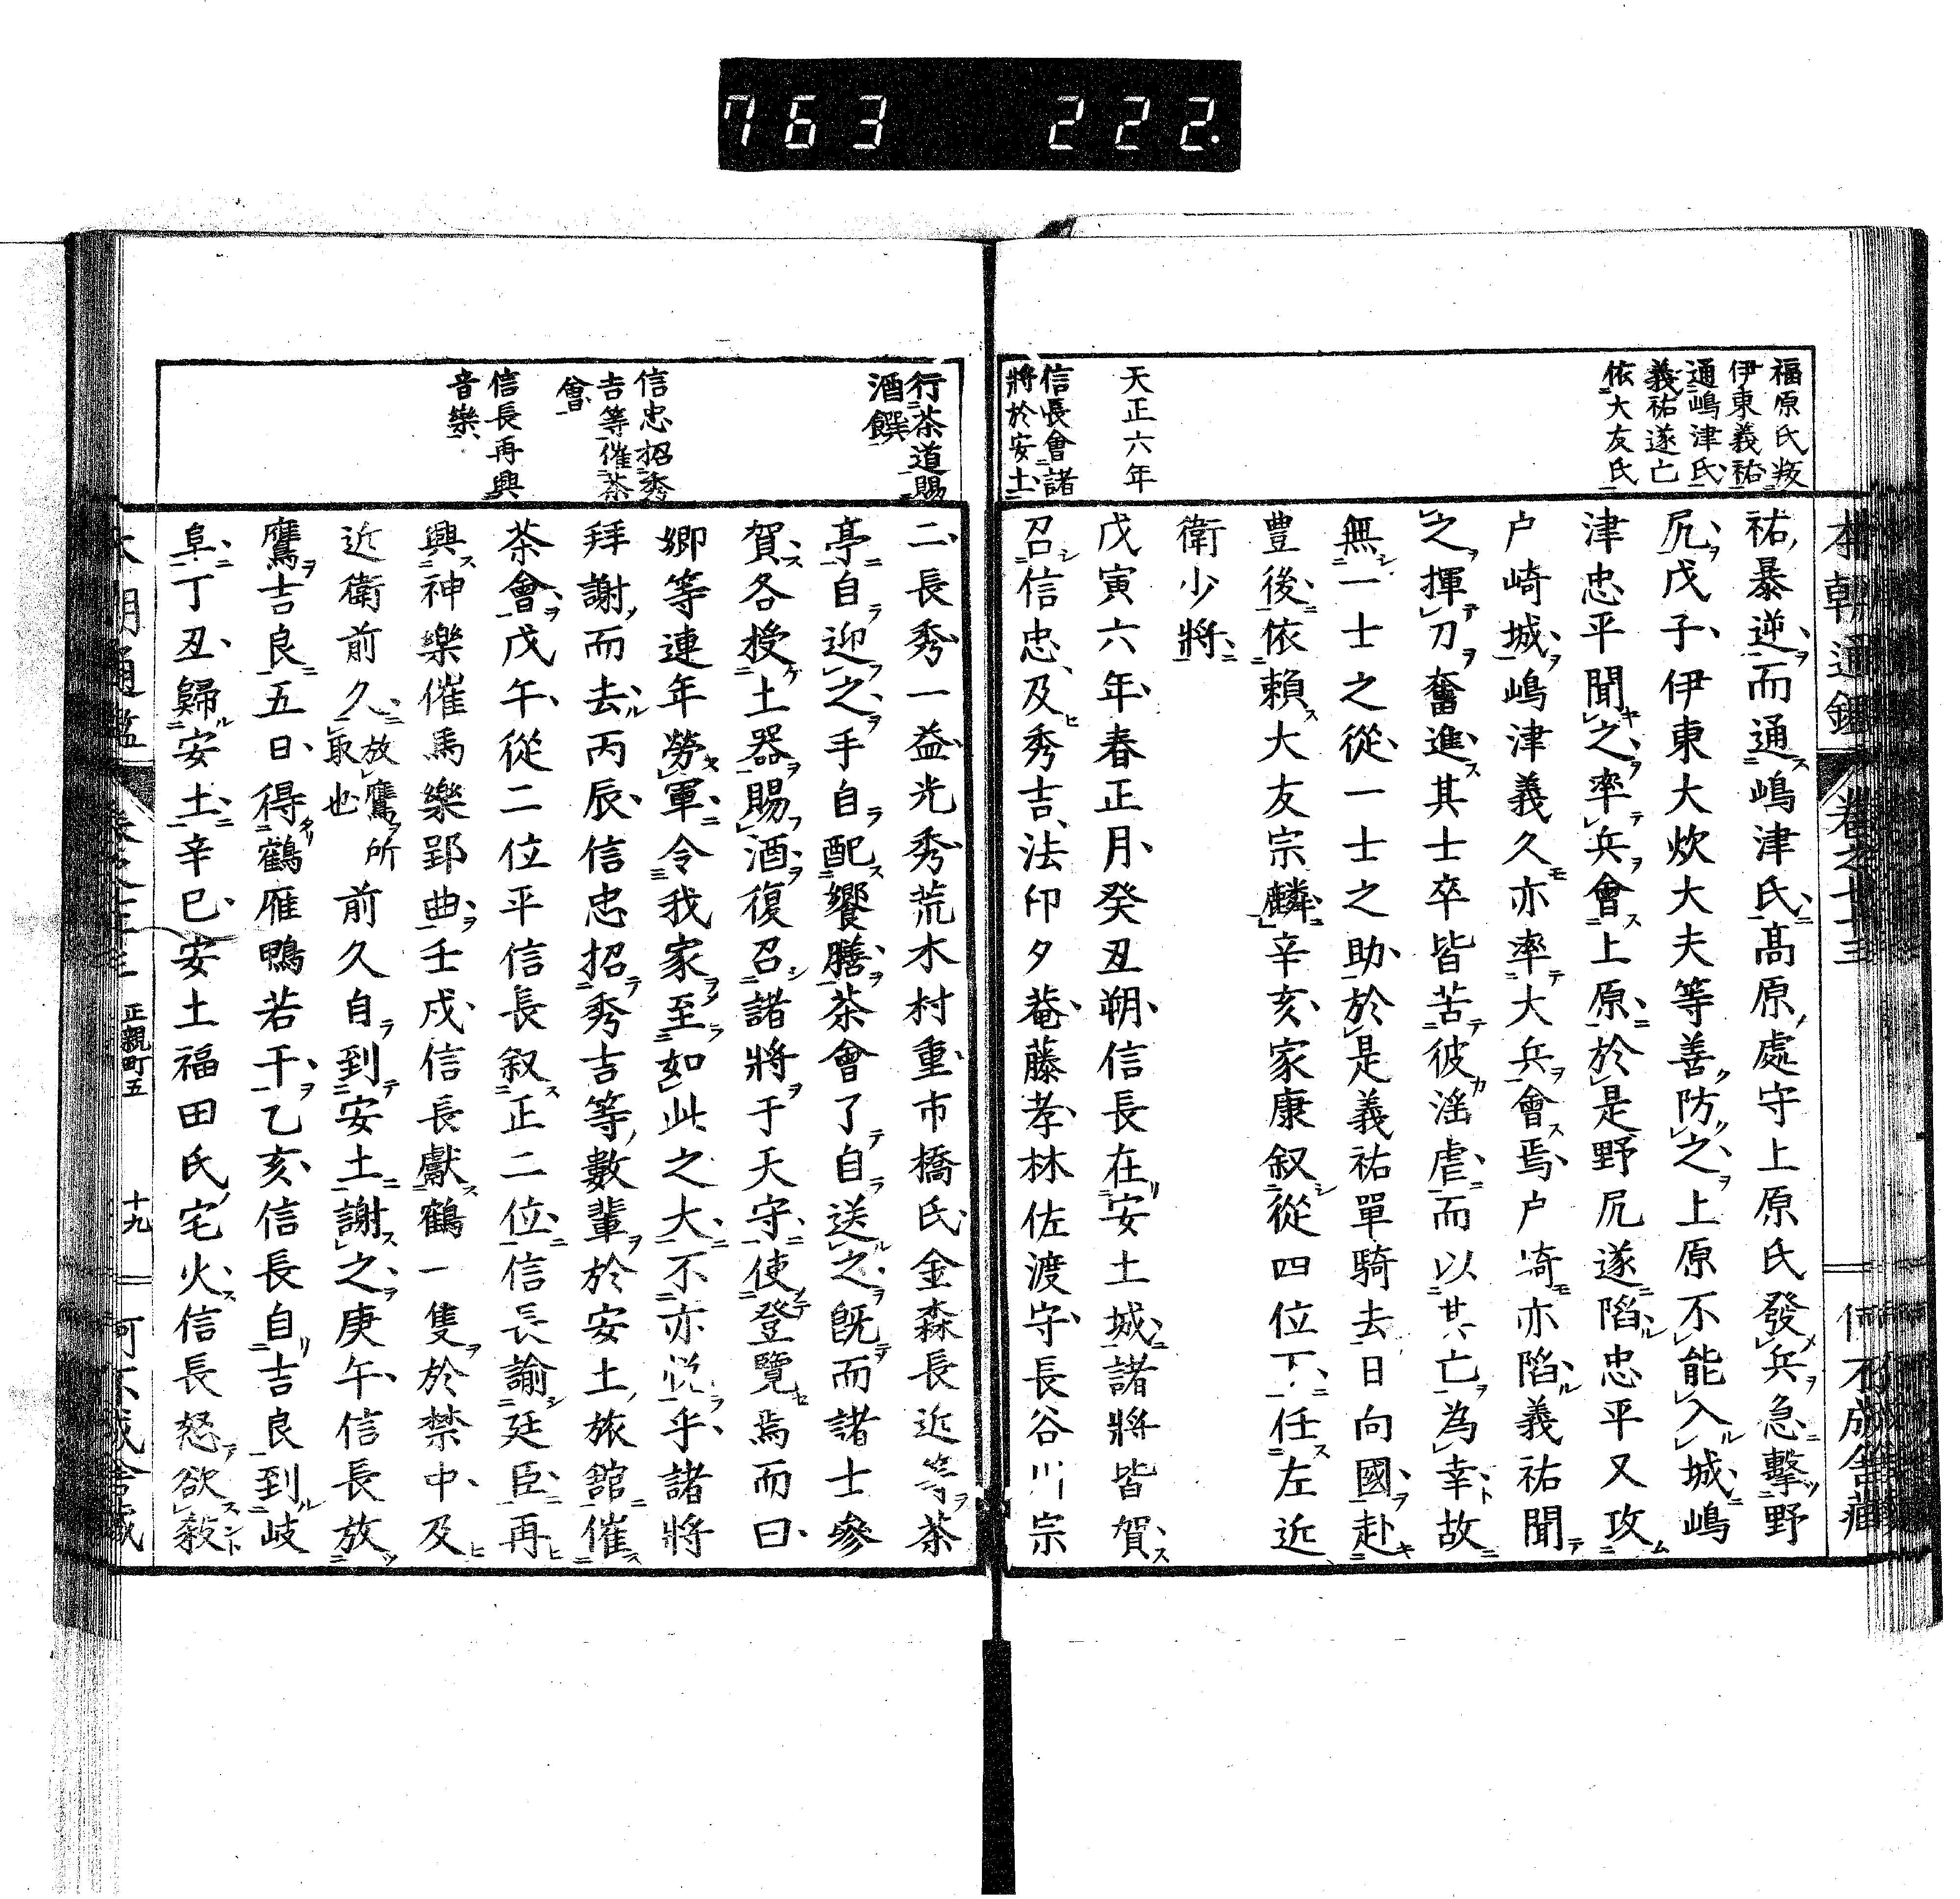 763 222.
福原氏叛
伊東義祐
通嶋津氏
義祐遂亡
依大友氏
天正六年
信長會諸
將於安土
本朝通鑑 卷之七十三
祐暴逆而通嶋津氏高原處守上原氏發兵急擊野
尻戊子伊東大炊大夫等善防之上原不能入城嶋
津忠平聞之率兵會上原於是野尻遂陷忠平又攻
戶崎城嶋津義久亦率大兵會焉戶崎亦陷義祐聞
之揮刀奮進其士卒皆苦彼滛虐而以其亡為幸故
無一士之從一士之助於是義祐單騎去日向國赴
豊後依頼大友宗麟辛亥家康叙從四位下任左近
衛少將
戊寅六年春正月癸丑朔信長在安土城諸將皆賀
召信忠及秀吉法印夕菴藤孝林佐渡守長谷川宗
行茶道賜
酒饌
信忠招秀
吉等催茶
會
信長再興
音樂
二長秀一益光秀荒木村重市橋氏金森長近等茶
亭自迎之手自配饗膳茶會了自送之既而諸士參
賀各授土器賜酒復召諸將于天守使登覽焉而曰
卿等連年勞軍令我家至如此之大不亦悅乎諸將
拜謝而去丙辰信忠招秀吉等數輩於安土旅館催
茶會戊午從二位平信長叙正二位信長諭廷臣再
興神樂催馬樂郢曲壬戌信長獻鶴一隻於禁中及
近衛前久放鷹所取也前久自到安土謝之庚午信長放
鷹吉良五日得鶴雁鴨若干乙亥信長自吉良到岐
阜丁丑歸安土辛巳安土福田氏宅火信長怒欲殺
正親町五
十九